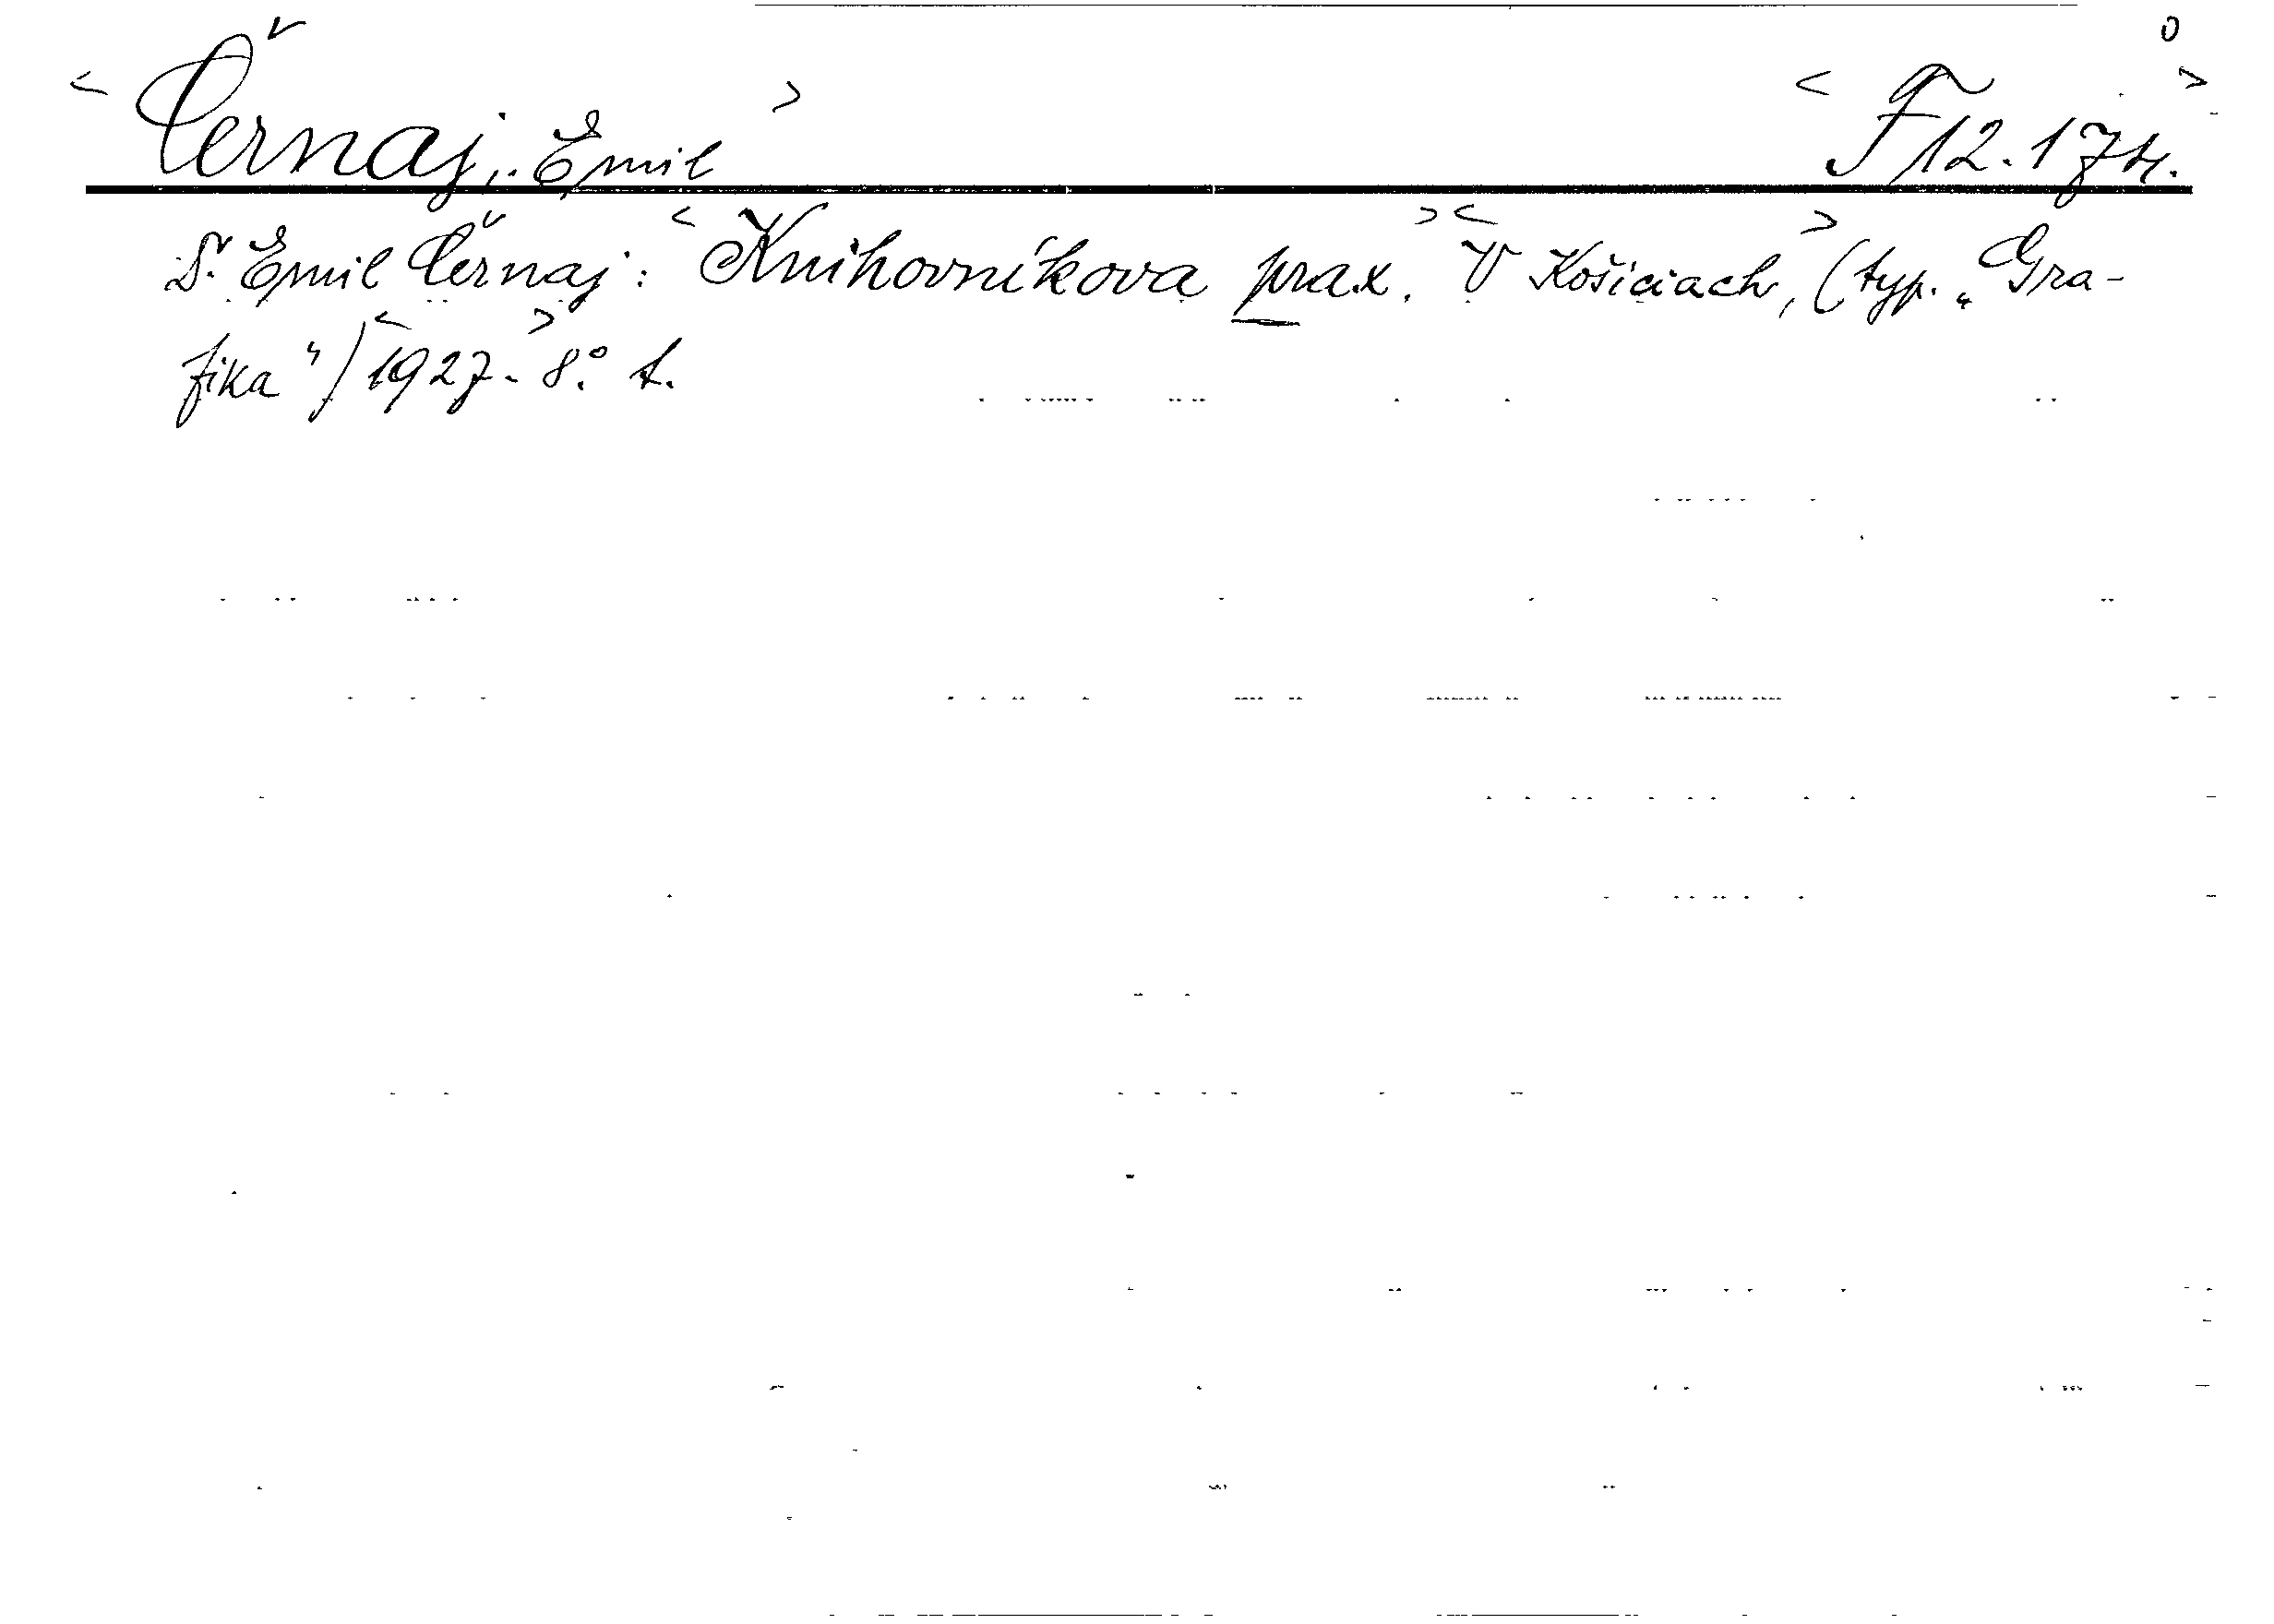 0
< Černaj, Emil > < F 12.174. >
Dr Emil Černaj: < Knihovníkova prax. > < V Košiciach, > (typ. „Gra-
fika") < 1927. > 8.°